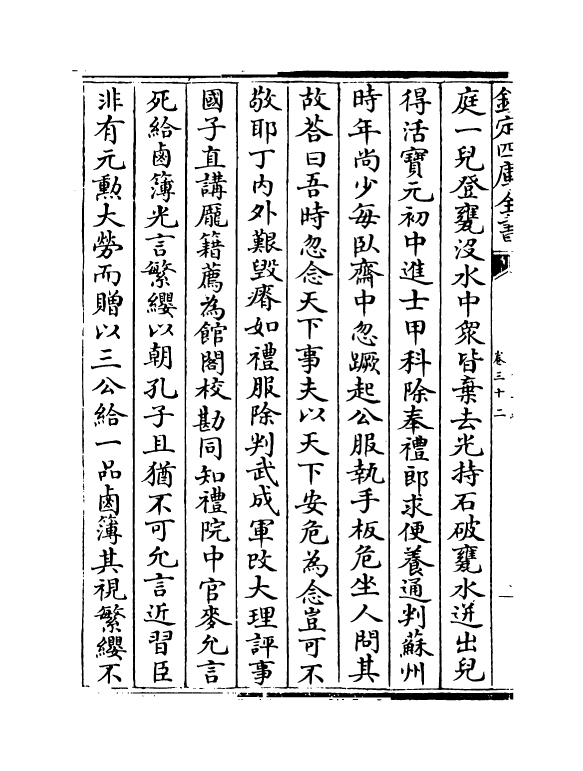 欽定四庫全書
卷三十二
庭一兒登甕没水中衆皆棄去光持石破甕水迸出兒
得活寶元初中進士甲科除奉禮郎求便養通判蘇州
時年尚少每臥齋中忽蹶起公服執手板危坐人問其
故荅曰吾時忽念天下事夫以天下安危為念豈可不
敬耶丁内外艱毀瘠如禮服除判武成軍改大理評事
國子直講龎籍薦為館閣校勘同知禮院中官麥允言
死給鹵簿光言繁纓以朝孔子且猶不可允言近習臣
非有元勲大勞而贈以三公給一品鹵簿其視繁纓不